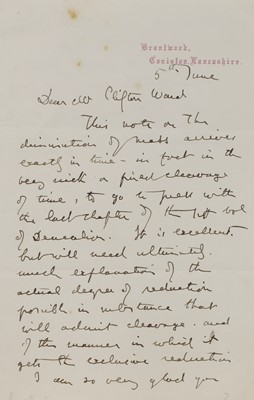 Brantwood,
Coniston, Lancashire.
5th June
Dear Mr Clifton Ward
This note on the
diminution of mass arrives
exactly in time – in fact in the
very nick or finest cleavage
of time, to go to press with
the last chapter of the 1st vol
of Deucalion. It is excellent.
but will need ultimately
much explanation of the
actual degree of reduction
possible in substance that
will admit cleavage. and
of the manner in which it
gets the exclusive reduction
I am so very glad you